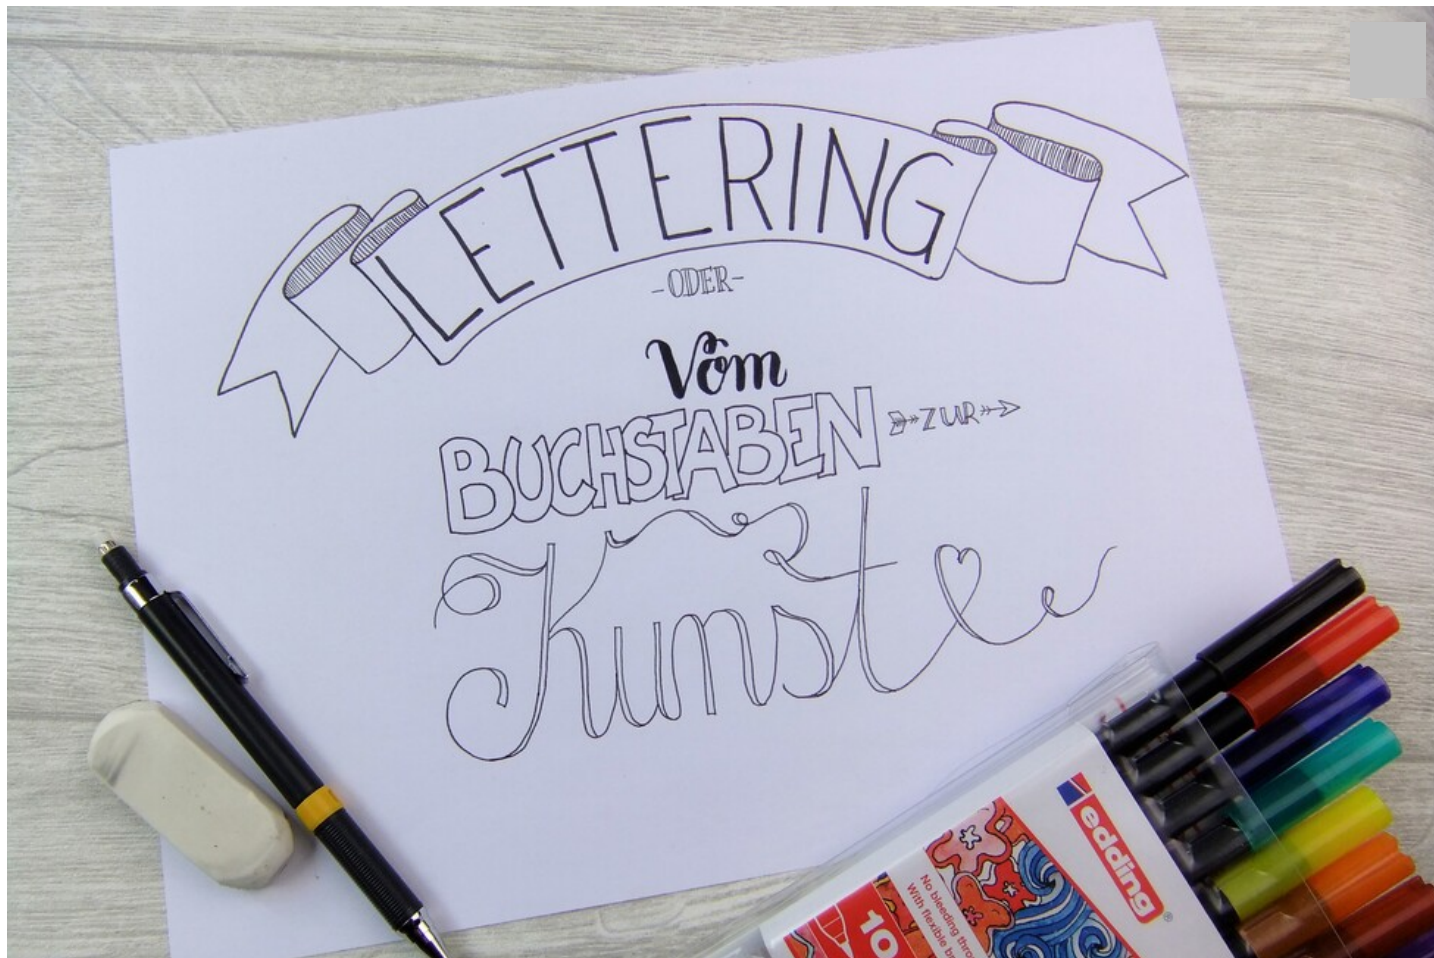 LETTERING
-ODER-
Vom
BUCHSTABEN ZUR
Kunst
edding
10
No bleeding
With flexible